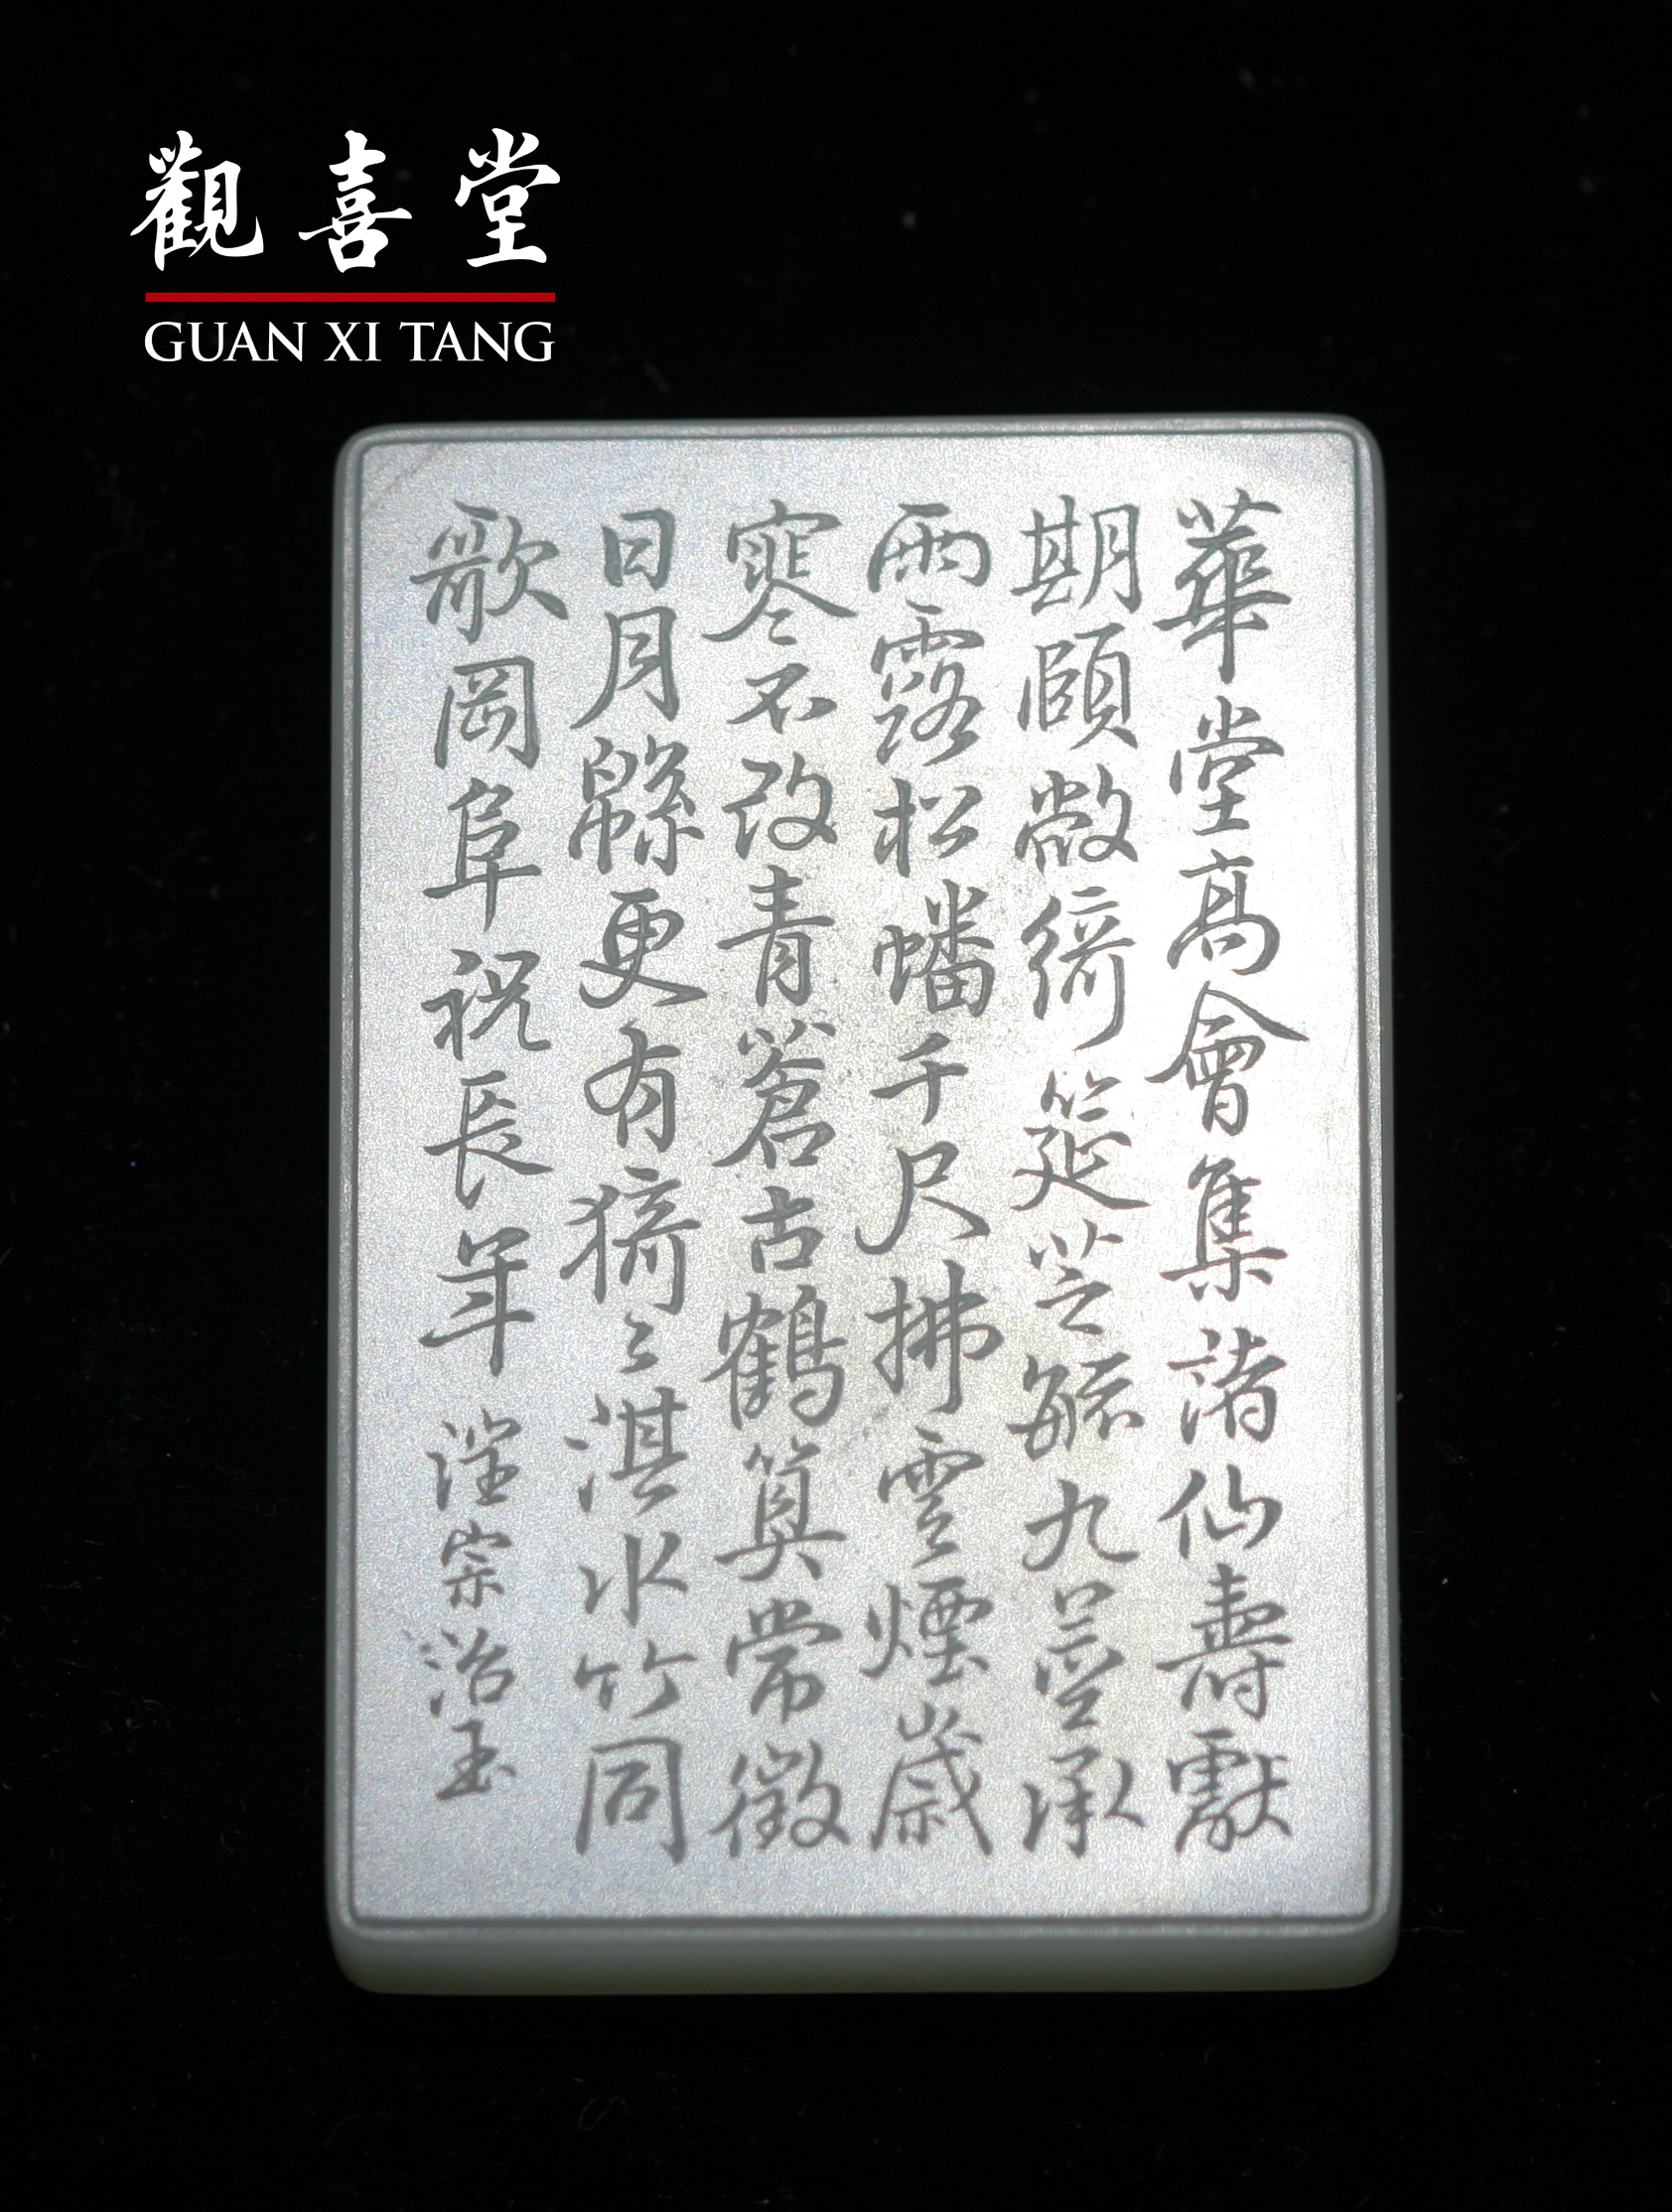 觀喜堂
GUAN XI TANG
華堂高會集諸仙壽獻
期頤敞綺筵芝毓九莖承
雨露松蟠千尺拂雲煙歲
寒不改青蒼古鶴算常徵
日月緜更有猗〻淇水竹同
歌岡阜祝長年 宗治玉